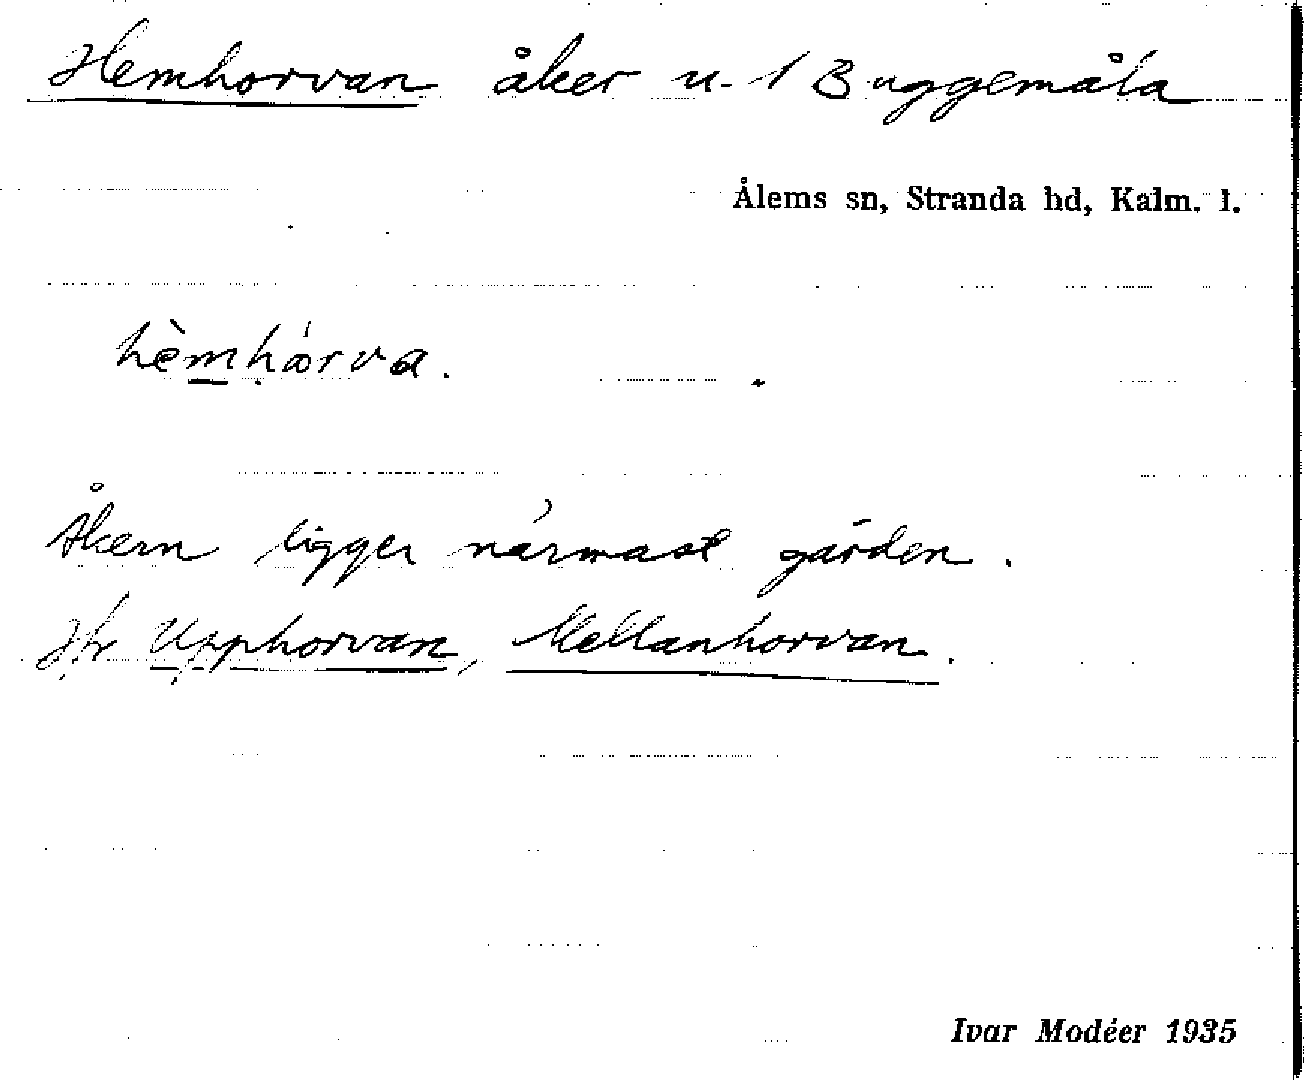 Hemhorvan åker u. 1 Buggemåla
Ålems sn, Stranda hd, Kalm. l.
hèmhǻrva.
Åkern ligger närmast gården.
Jfr Upphorvan, Mellanhorvan.
Ivar Modéer 1935